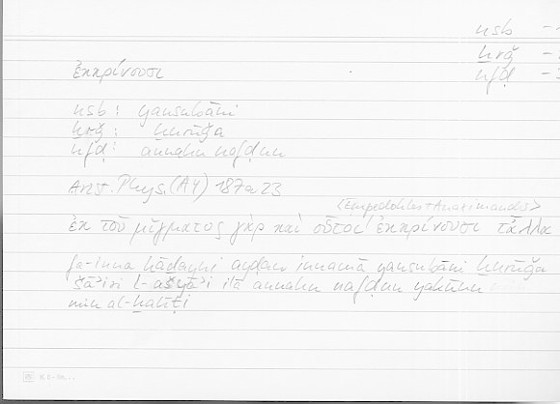 nsb –
ḫrǧ –
nfḍ –
ἐκκρίνουσι
nsb: yansubāni
ḫrǧ: ḫurūǧa
nfḍ: annahu nafḍun
Arist. Phys. (A4) 187a23
<Empedokles + Anaximander>
ἐκ τοῦ μίγματος γὰρ καὶ οὗτοι ἐκκρίνουσι τἆλλα
fa-inna hāḏayni ayḍan innamā yansubāni ḫurūǧa
sāʾiri l-ašyāʾi ilā annahu nafḍun yakūnu
min al-ḫalīṭi